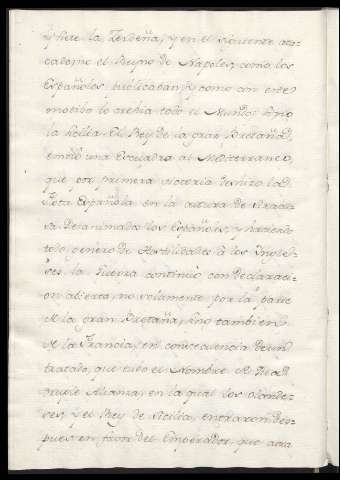 y fuese la Zerdeña, y en el siguiente ata-
cado el Reyno de Napoles, como los
Españoles publicaban, y como con este
motibo lo crehia todo el Mundo: sino
la Sicilia. El Rey de la gran Bretaña
embió una Escuadra al Mediterraneo,
que por primera victoria deshizo la
flota Española en la altura de Siracu-
sa. Desanimados los Españoles, y haciendo
todo genero de Hostilidades à los Yngle-
ses, la Guerra continuò con Declaraci-
on abierta, no solamente por la parte
de la gran Bretaña, sino tambien
de la Francia, en consecuencia de un
tratado, que tubo el Nombre de Quad-
ruple Alianza, en la qual los olande-
ses, y el Rey de Sicilia, entraron des-
pues en favor del Emperador, que aca